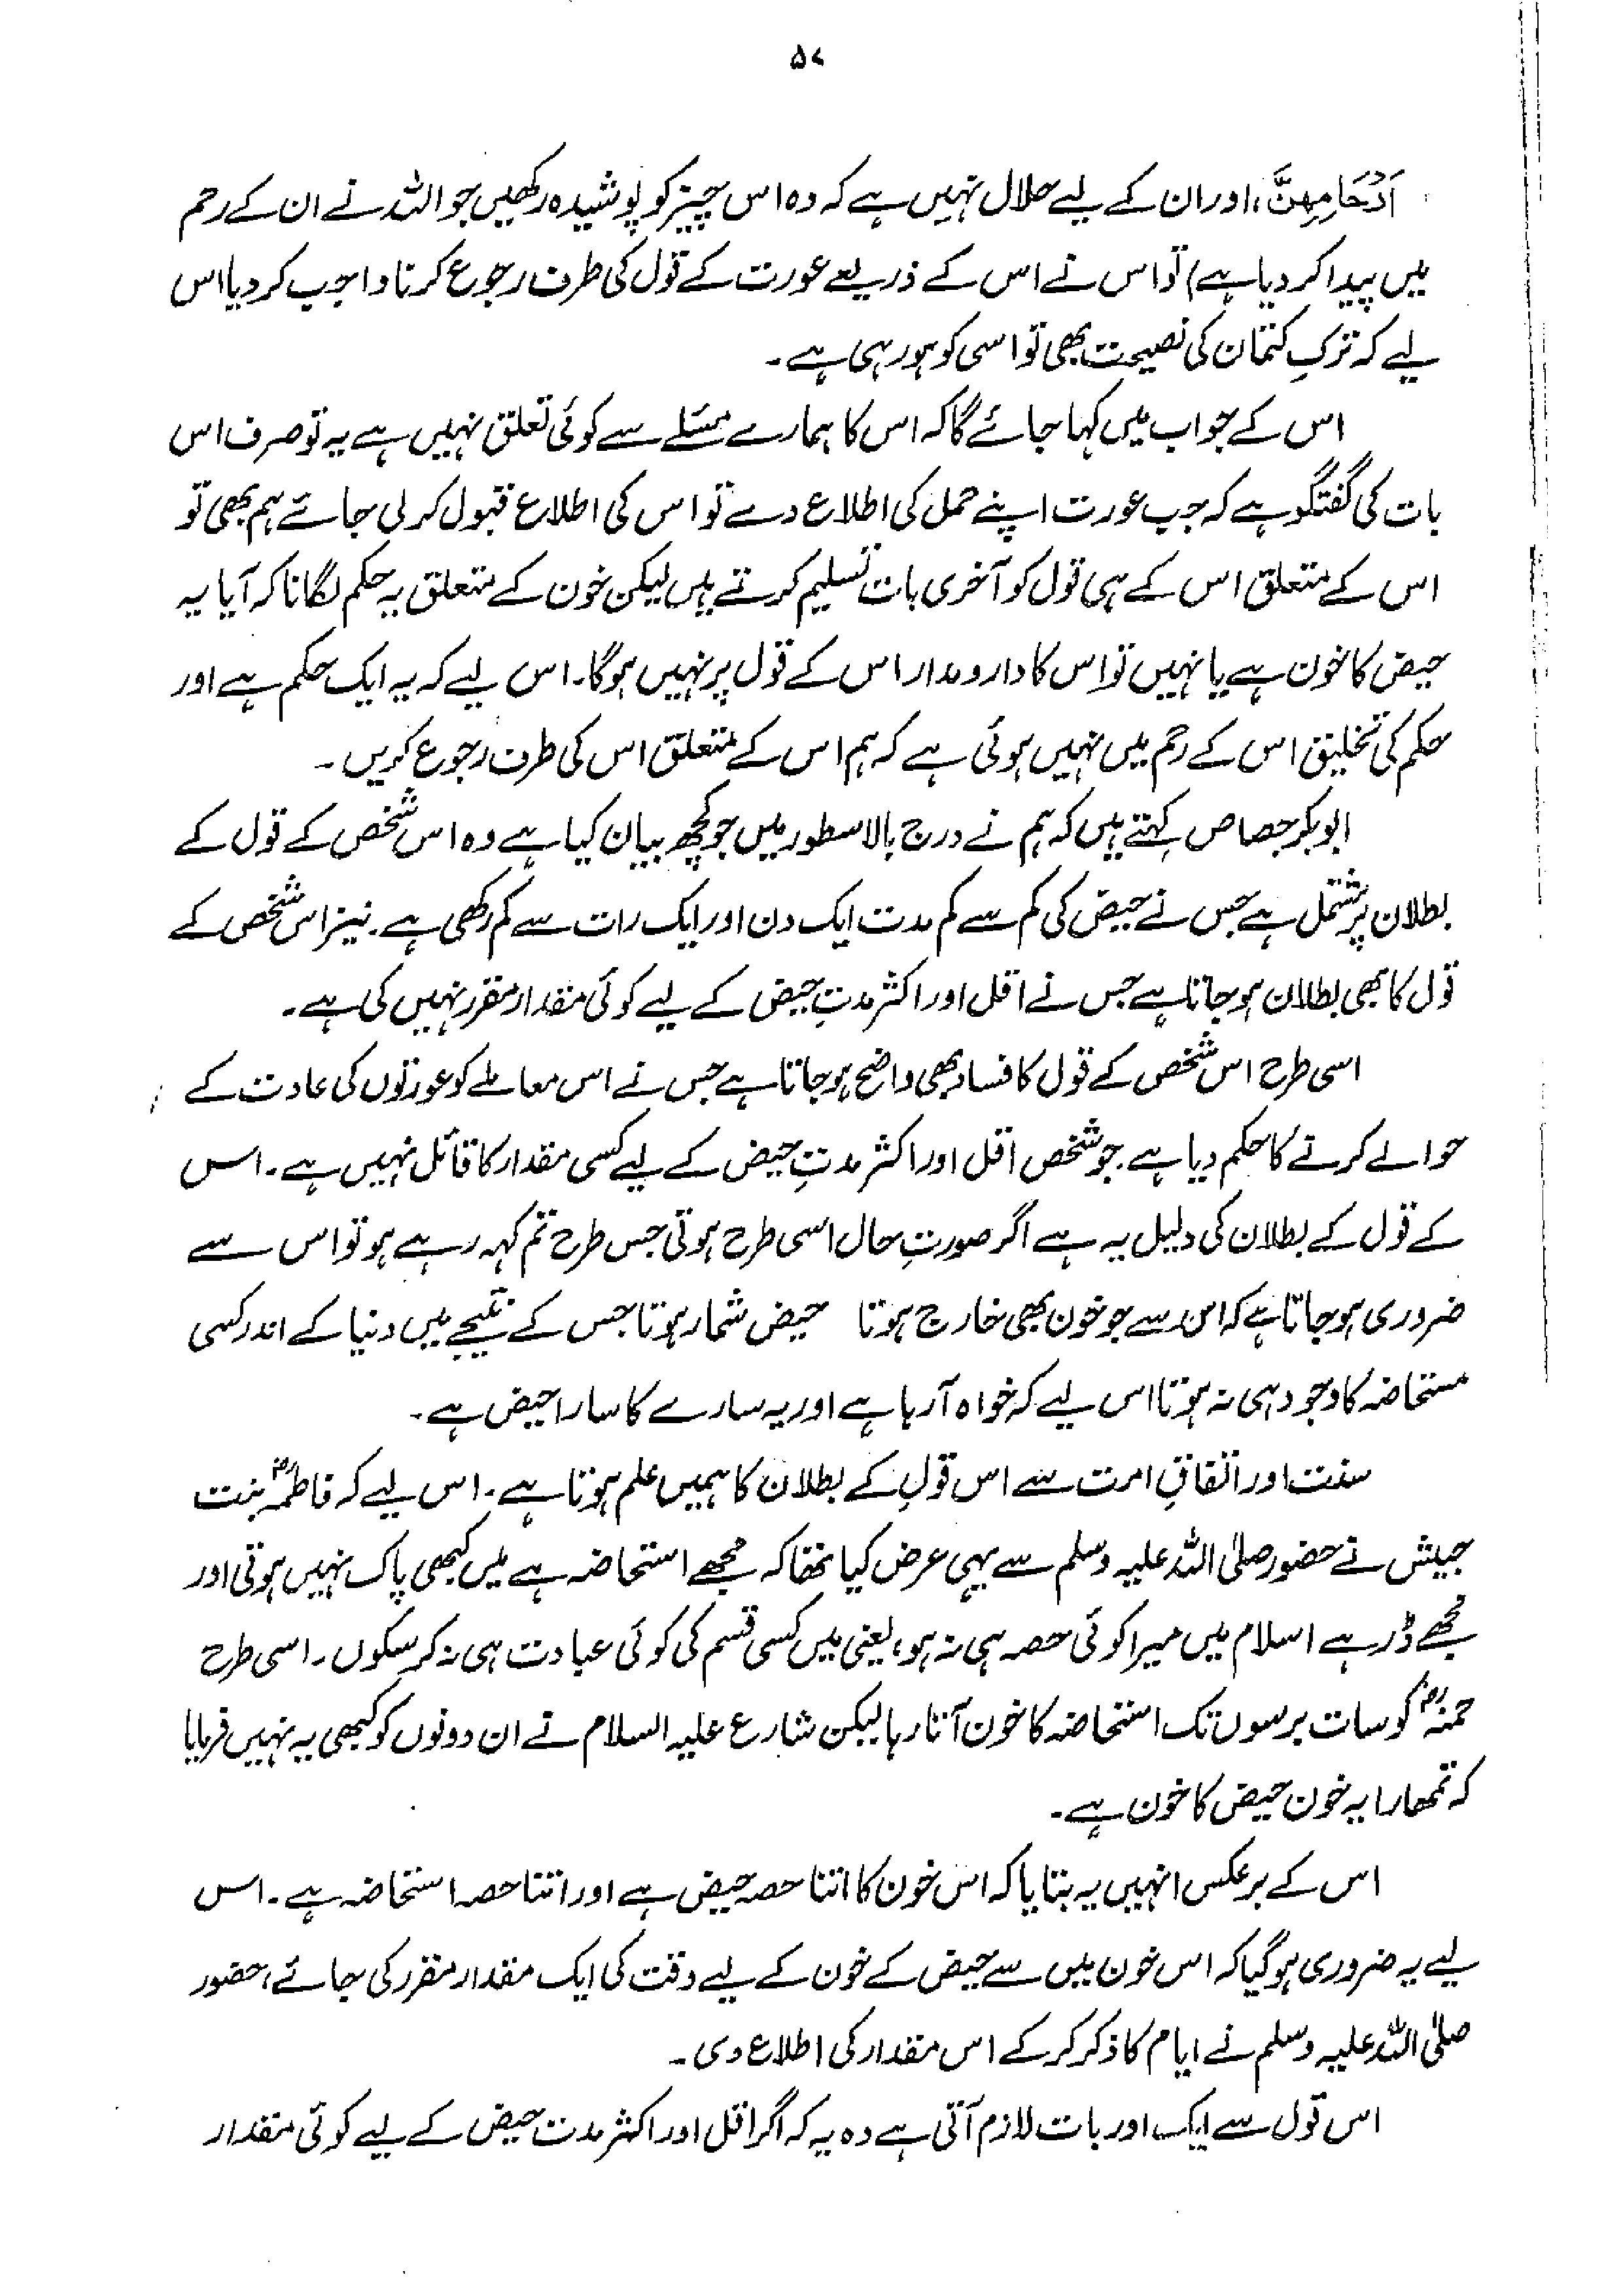 ۵۷
اَرْحَامِهِنَّ، اور ان کے لیے حلال نہیں ہے کہ وہ اس چیز کو پوشیدہ رکھیں جو اللہ نے ان کے رحم
میں پیدا کر دیا ہے) تو اس نے اس کے ذریعے عورت کے قول کی طرف رجوع کرنا واجب کر دیا اس
لیے کہ ترکِ کتمان کی نصیحت بھی تو اسی کو ہو رہی ہے۔
اس کے جواب میں کہا جائے گا کہ اس کا ہمارے مسئلے سے کوئی تعلق نہیں ہے یہ تو صرف اس
بات کی گفتگو ہے کہ جب عورت اپنے حمل کی اطلاع دے تو اس کی اطلاع قبول کر لی جائے ہم بھی تو
اس کے متعلق اس کے ہی قول کو آخری بات تسلیم کرتے ہیں لیکن خون کے متعلق یہ حکم لگانا کہ آیا یہ
حیض کا خون ہے یا نہیں تو اس کا دارومدار اس کے قول پر نہیں ہوگا۔ اس لیے کہ یہ ایک حکم ہے اور
حکم کی تخلیق اس کے رحم میں نہیں ہوئی ہے کہ ہم اس کے متعلق اس کی طرف رجوع کریں۔
ابوبکر جصاص کہتے ہیں کہ ہم نے درج بالا سطور میں جو کچھ بیان کیا ہے وہ اس شخص کے قول کے
بطلان پر مشتمل ہے جس نے حیض کی کم سے کم مدت ایک دن اور ایک رات سے کم رکھی ہے۔ نیز اس شخص کے
قول کا بھی بطلان ہو جاتا ہے جس نے اقل اور اکثر مدتِ حیض کے لیے کوئی مقدار مقرر نہیں کی ہے۔
اسی طرح اس شخص کے قول کا فساد بھی واضح ہو جاتا ہے جس نے اس معاملے کو عورتوں کی عادت کے
حوالے کرنے کا حکم دیا ہے۔ جو شخص اقل اور اکثر مدتِ حیض کے لیے کسی مقدار کا قائل نہیں ہے۔ اس
کے قول کے بطلان کی دلیل یہ ہے اگر صورتِ حال اسی طرح ہوتی جس طرح تم کہہ رہے ہو تو اس سے
ضروری ہو جاتا ہے کہ اس سے جو خون بھی خارج ہوتا حیض شمار ہوتا جس کے نتیجے میں دنیا کے اندر کسی
مستحاضہ کا وجود ہی نہ ہوتا اس لیے کہ خواہ آ رہا ہے اور یہ سارے کا سارا حیض ہے۔
سنت اور اتفاقِ امت سے اس قول کے بطلان کا ہمیں علم ہوتا ہے۔ اس لیے کہ فاطمہؓ بنت
حبیش نے حضور صلی اللہ علیہ وسلم سے یہی عرض کیا تھا کہ مجھے استحاضہ ہے میں کبھی پاک نہیں ہوتی اور
مجھے ڈر ہے اسلام میں میرا کوئی حصہ ہی نہ ہو، یعنی میں کسی قسم کی کوئی عبادت ہی نہ کر سکوں۔ اسی طرح
حمنہؓ کو سات برسوں تک استحاضہ کا خون آتا رہا لیکن شارع علیہ السلام نے ان دونوں کو کبھی یہ نہیں فرمایا
کہ تمھارا یہ خون حیض کا خون ہے۔
اس کے برعکس انہیں یہ بتایا کہ اس خون کا اتنا حصہ حیض ہے اور اتنا حصہ استحاضہ ہے۔ اس
لیے یہ ضروری ہو گیا کہ اس خون میں سے حیض کے خون کے لیے وقت کی ایک مقدار مقرر کی جائے، حضور
صلی اللہ علیہ وسلم نے ایام کا ذکر کر کے اس مقدار کی اطلاع دی۔
اس قول سے ایک اور بات لازم آتی ہے وہ یہ کہ اگر اقل اور اکثر مدت حیض کے لیے کوئی مقدار